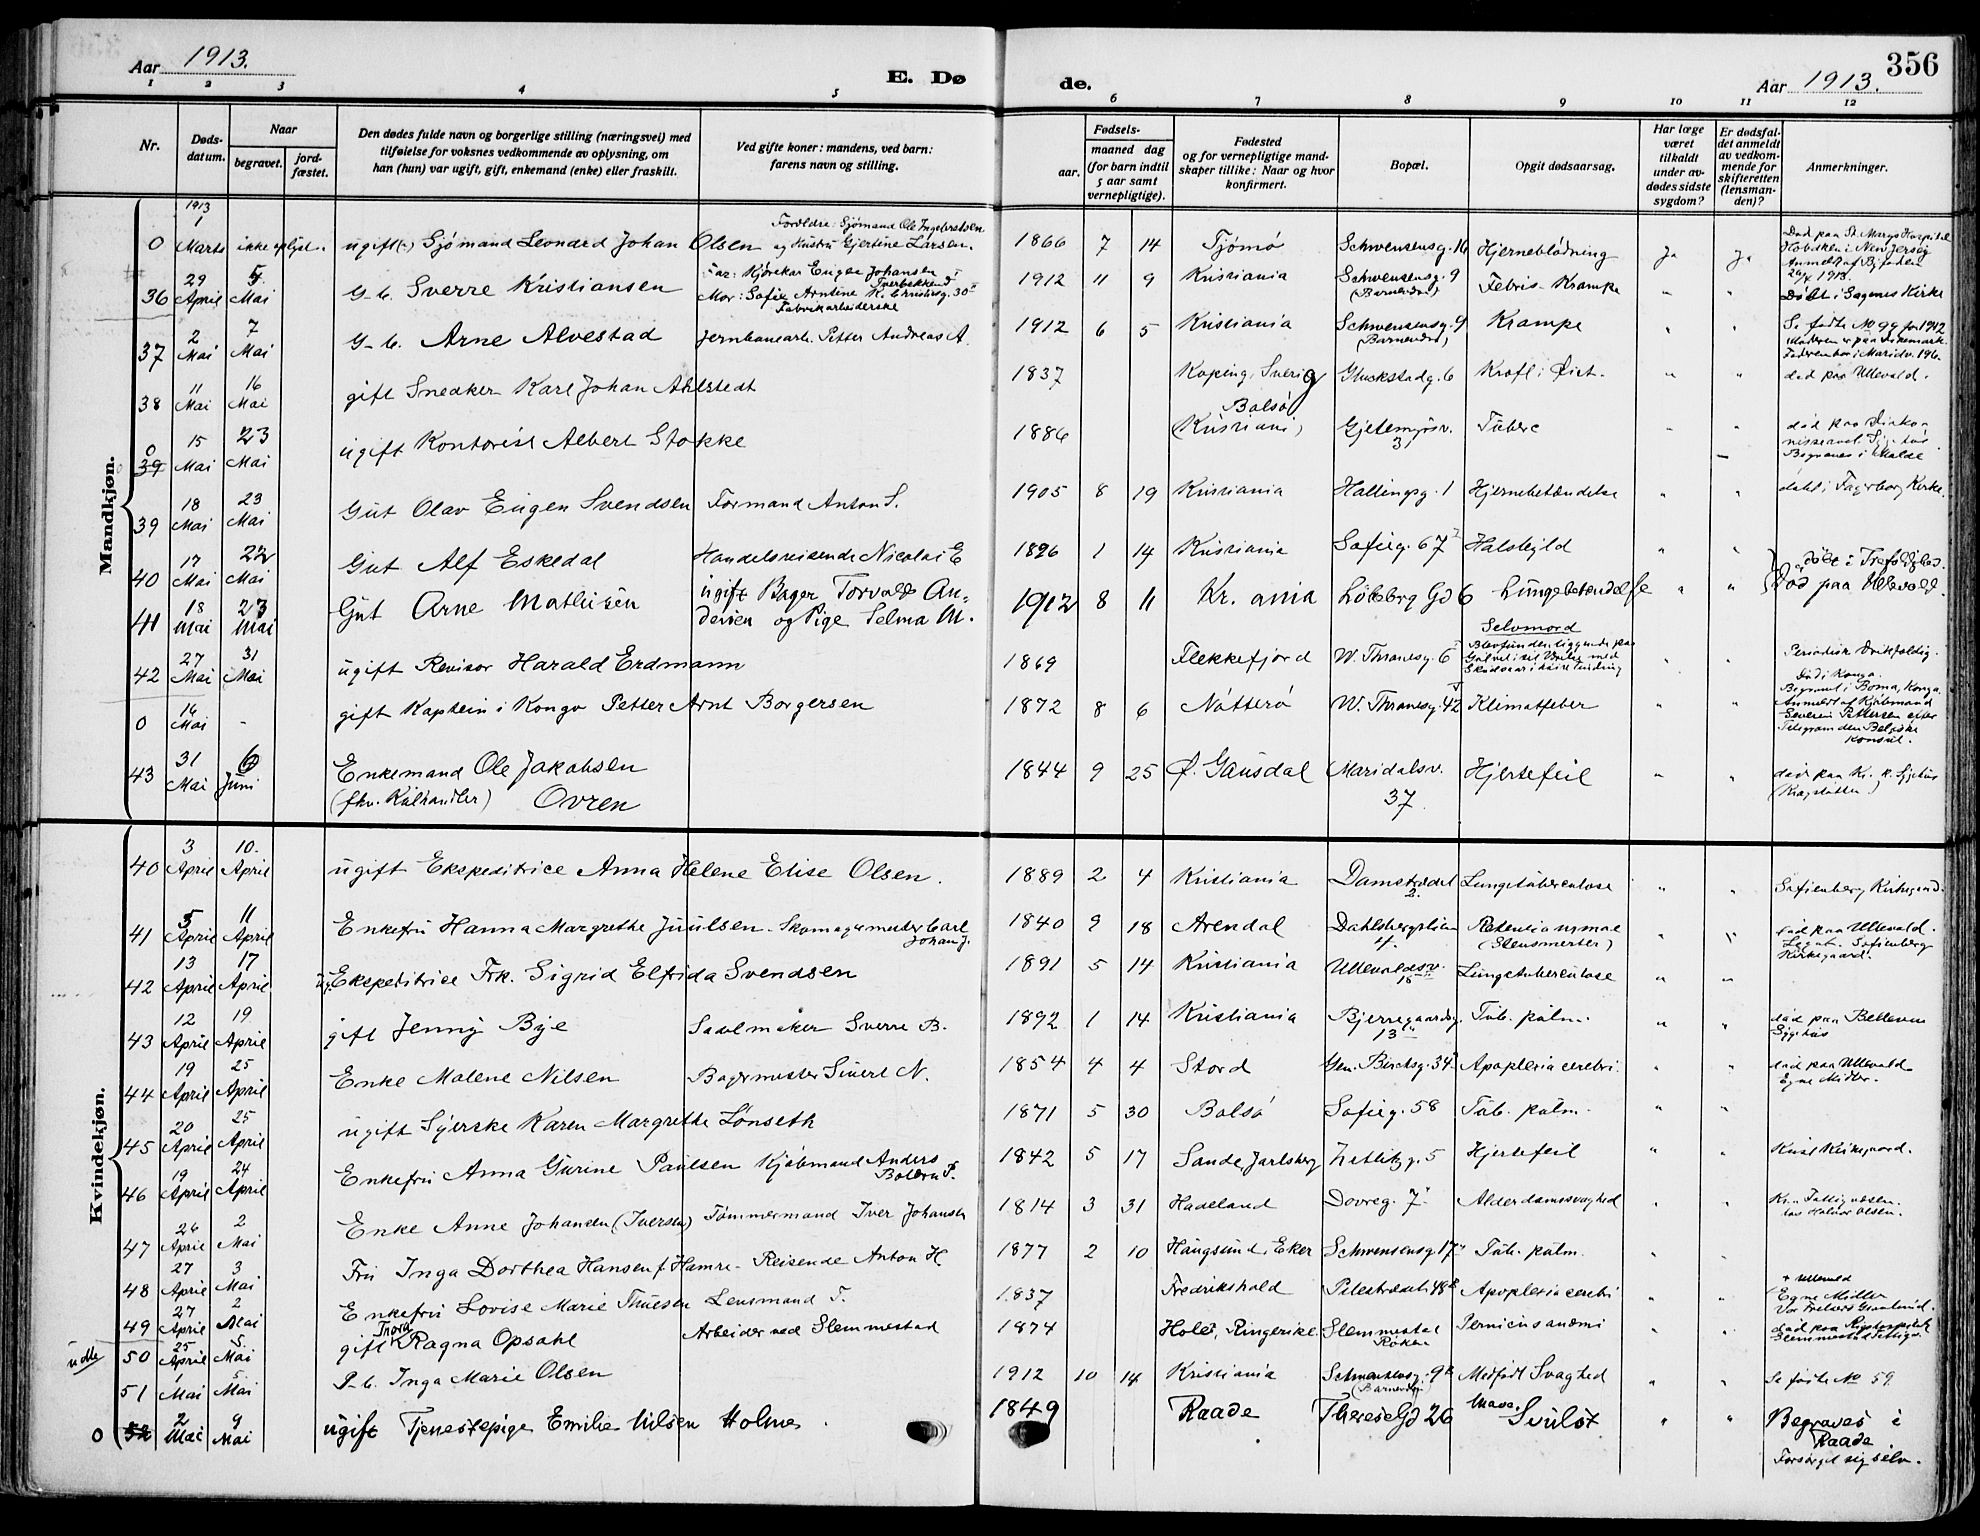 Aar 1913.
E. Døde.
Aar 1913. 356
1 2 3 4 5 6 7 8 9 10 11 12
Nr.
Døds-
datum.
Naar
begravet.
jord-
fæstet.
Den dødes fulde navn og borgerlige stilling (næringsvei) med
tilføielse for voksnes vedkommende av oplysning, om
han (hun) var ugift, gift, enkemand (enke) eller fraskilt.
Ved gifte koner: mandens, ved barn:
farens navn og stilling.
Fødsels-
aar.
maaned dag
(for barn indtil
5 aar samt
vernepligtige).
Fødested
og for vernepligtige mand-
skaper tillike: Naar og hvor
konfirmert.
Bopæl.
Opgit dødsaarsag.
Har læge
været
tilkaldt
under av-
dødes sidste
sygdom?
Er dødsfal-
det anmeldt
av vedkom-
mende for
skifteretten
(lensman-
den)?
Anmerkninger.
Mandkjøn.
1913
0 1 Marts ikke oplyst. ugift(-) Sjømand Leonard Johan Olsen Forældre: Sjømand Ole Ingebretsen og Hustru Gjertine Larsen. 1866 7 14 Tjømø Schwensensg. 16 Hjerneblødning Ja Ja Død paa St. Marys Hospital Hoboken i New Jersey
36 29 April 5 Mai G-b. Sverre Kristiansen Far: Kjørekar Eugen Johansen Mor: Sofie Arntine K. Fabrikarbeiderske 1912 11 9 Kristiania Schwensensg. 9 Febris - Krampe " " Døbt i Sagenes Kirke
37 2 Mai 7 Mai G-b. Arne Alvestad Jernbanearb. Petter Andreas A. 1912 6 5 Kristiania Schwensensg. 9 Krampe " " Se fødte No 99 for 1912
38 11 Mai 16 Mai gift Snedker Karl Johan Ahlstedt 1837 Køping, Sverig Gluckstadg. 6 Kræft i Øiet. " " død paa Ullevold.
0 39 15 Mai 23 Mai ugift Kontorist Albert Stokke 1886 Bolsø (Kristiania) Gjetemyrsv. 3 Tuberc " " Begraves i Molde
39 18 Mai 23 Mai Gut Olav Eugen Svendsen Formand Anton S. 1905 8 19 Kristiania Hallingsg. 1 Hjernebetændelse " " døbt i Fagerborg Kirke.
40 17 Mai 22 Mai Gut Alf Eskedal Handelsreisende Nicolai E 1896 1 14 Kristiania Sofieg. 67 Halsbyld " "
41 18 Mai 23 Mai Gut Arne Mathisen ugift Bager Torvald An-dersen og Pige Selma M. 1912 8 11 Kr.ania Løkeberg Gd 6 Lungebetændelse " " Død paa Ullevold.
42 27 Mai 31 Mai ugift Revisor Harald Erdmann 1869 Flekkefjord W. Thranesg. 6 Selvmord " " Periodisk Drikfældig.
0 16 Mai - gift Kaptein i Kongo Petter Arnt Borgersen 1872 8 6 Nøtterø W. Thranesg. 42 Klimatfeber " " Død i Kongo. Begravet i Boma, Kongo. Anmeldt af Kjøbmand Severin Pettersen efter Telegram den Belgiske Konsul.
43 31 Mai 6 Juni Enkemand Ole Jakobsen (fhv. Kulhandler) Ovren 1844 9 25 Ø. Gausdal Maridalsv. 37. Hjertefeil " "
Kvindekjøn.
40 3 April 10. April ugift Ekspeditrice Anna Helene Elise Olsen. 1889 2 4 Kristiania Damstrædet 2. Lungetuberculose " " Sofienberg Kirkegaard.
41 5 April 11 April Enkefru Hanna Margrethe Juulsen - Skomagermester Carl Johan J. 1840 9 18 Arendal Dahlsbergstien 4. (Stensmerter) " " død paa Ullevold. Sofienberg Kirkegaard.
42 13 April 17 April ug. Ekspeditrice Frk. Sigrid Elfrida Svendsen 1891 5 14 Kristiania Ullevoldsv. 15 Lungetuberculose " "
43 12 April 19 April gift Jenny Bye Sadelmaker Sverre B. 1892 1 14 Kristiania Bjerregaardsg. 13 Tub. pulm. " " død paa Bellevue Sygehus
44 19 April 25 April Enke Malene Nilsen Bagermester Sivert N. 1854 4 4 Stord Gen. Birchsg. 34 Apoplexia cerebri. " " død paa Ullevold Egne Midler.
45 20 April 25 April ugift Syerske Karen Margrethe Lønseth 1871 5 30 Bolsø Sofieg. 58 Tub. pulm. " "
46 19 April 24 April Enkefru Anna Gurine Paulsen Kjøbmand Anders P. 1842 5 17 Sande Jarlsberg Zetlitzg. 5 Hjertefeil " "
47 26 April 2 Mai Enke Anne Johansen (Iversen) Tømmermand Iver Johansen 1814 3 31 Hadeland Dovreg. 7 Alderdomssvaghed " "
48 27 April 3 Mai Fru Inga Dorthea Hansen f. Hamre - Reisende Anton H. 1877 2 10 Haugsund, Eker Schwensensg 17 Tub. pulm. " "
49 27 April 2 Mai Enkefru Lovise Marie Thuesen Lensmand T. 1837 Fredrikshald Pilestrædet 48 Apoplexia cerebri " " + Ullevold Egne Midler Vor Frelsers Gravlund.
50 25 April 5. Mai gift Thora Ragna Opsahl Arbeider ved Slemmestad 1874 Hole, Ringerike. Slemmestad Røken Pernicius anæmi " "
51 1 Mai 5 Mai P-b. Inga Marie Olsen 1912 10 14 Kristiania Schwensensg. 9 Medfødt Svaghed " " Se fødte No 59.
0 52 2 Mai 9 Mai ugift Tjenestepige Emilie Nilsen Holmes. 1849 Raade Therese Gd 26 Mave. Svulst " " Begraves i Raade Forsørget sig selv.